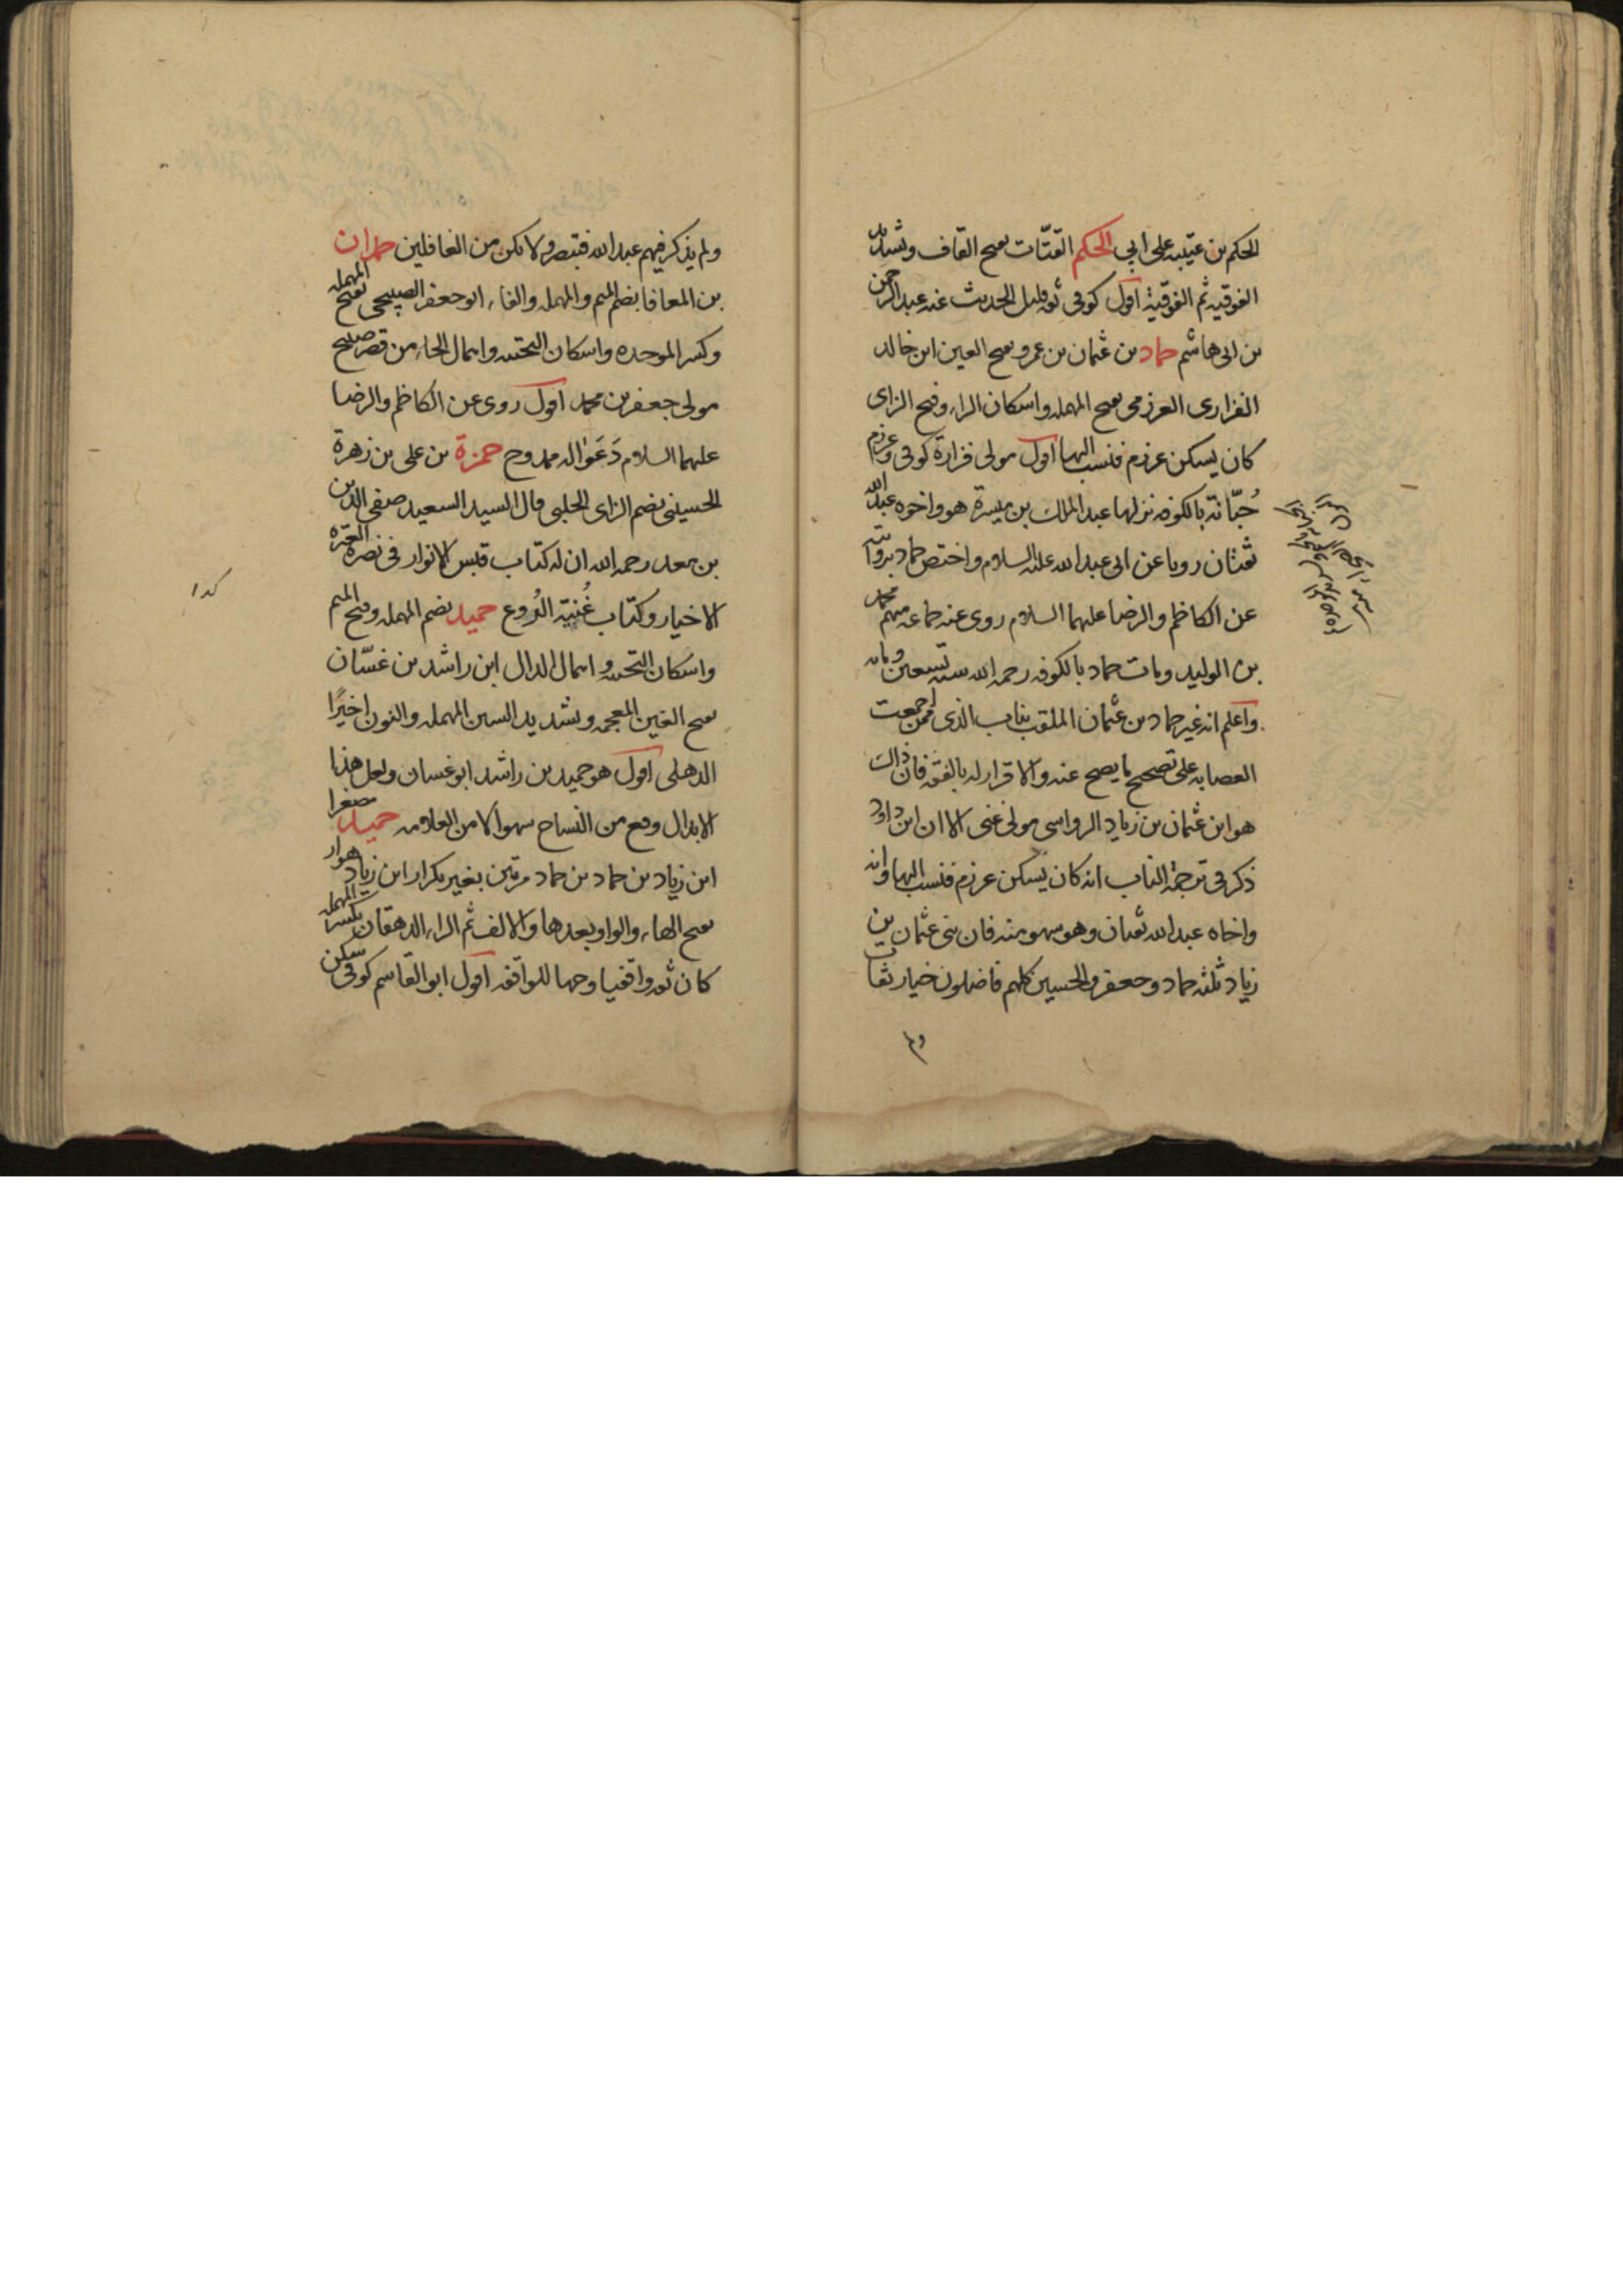 الحكم بن عتيبه على ابي الحكم القتّات بفتح القاف وتشديد
الفوقيه ثم الفوقية اقول كوفى ثقه قليل الحديث عنه عبدالرحمن
بن ابى هاشم حماد بن عثمان بن عمرو بفتح العين ابن خالد
الفزارى العرزمى بفتح المهمله واسكان الراء وفتح الزاى
كان يسكن عرزم فنسب اليها اقول مولى فزارة كوفى وعرزم
جُبّانة بالكوفه نزلها عبد الملك بن ميسرة هو واخوه عبدالله
ثقتان رويا عن ابى عبدالله عليه السلام واختص حماد بروايته
عن الكاظم والرضا عليهما السلام روى عنه جماعه منهم محمد
بن الوليد ومات حماد بالكوفه رحمه الله سنه تسعين ومايه
واعلم انه غير حماد بن عثمان الملقب بناب الذى ممن اجمعت
العصابه على تصحيح ما يصح عنه والاقرار له بالفقه فان ذالك
هو ابن عثمان بن زياد الرواسى مولى غنى الا ان ابن داود
ذكر فى ترجمة الناب انه كان يسكن عرزم فنسب اليها وانه
واخاه عبدالله ثقتان وهو سهو منه فان بنى عثمان بن
زياد ثلثه حماد وجعفر والحسين كلهم فاضلون خيار ثقات
ولم
ولم يذكر فيهم عبدالله فتبصر ولا تكن من الغافلين حمدان
بن المعافا بضم الميم والمهمله والفاء ابو جعفر الصبيحى بفتح المهمله
وكسر الموحده واسكان التحتيه واهمال الحاء من قصر صبيح
مولى جعفر بن محمد اقول روى عن الكاظم والرضا
عليهما السلام دَعَوَا له ممدوح حمزة بن على بن زهرة
الحسينى بضم الزاى الحلبى قال السيد السعيد صفى الدين
بن معد رحمه الله ان له كتاب قبس الانوار فى نصرة العترة
الاخيار وكتاب غُنية النُزوع حميد بضم المهمله وفتح الميم
واسكان التحتيه واهمال الدال ابن راشد بن غسّان
بفتح الغين المعجمه وتشديد السين المهمله والنون اخيرًا
الذهلى اقول هو حميد بن راشد ابو غسان ولعل هذا
الابدال وقع من النساخ سهوا لا من العلامه حميد مصغرا
ابن زياد بن حماد بن حماد مرتين بغير تكرار ابن زياد هوار
بفتح الهاء والواو بعدها والالف ثم الراء الدهقان بكسر المهمله
كان ثقه واقفيا وجها للواقفه اقول ابو القاسم كوفى سكن
كذا